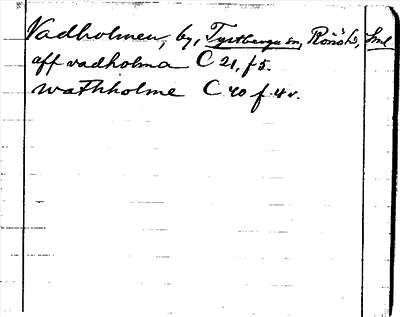 Vadholmen, by, Tystberga sn, Rönö hd, Sml
aff vadholma C 21, f 5.
wathholme C 40 f 4 v.